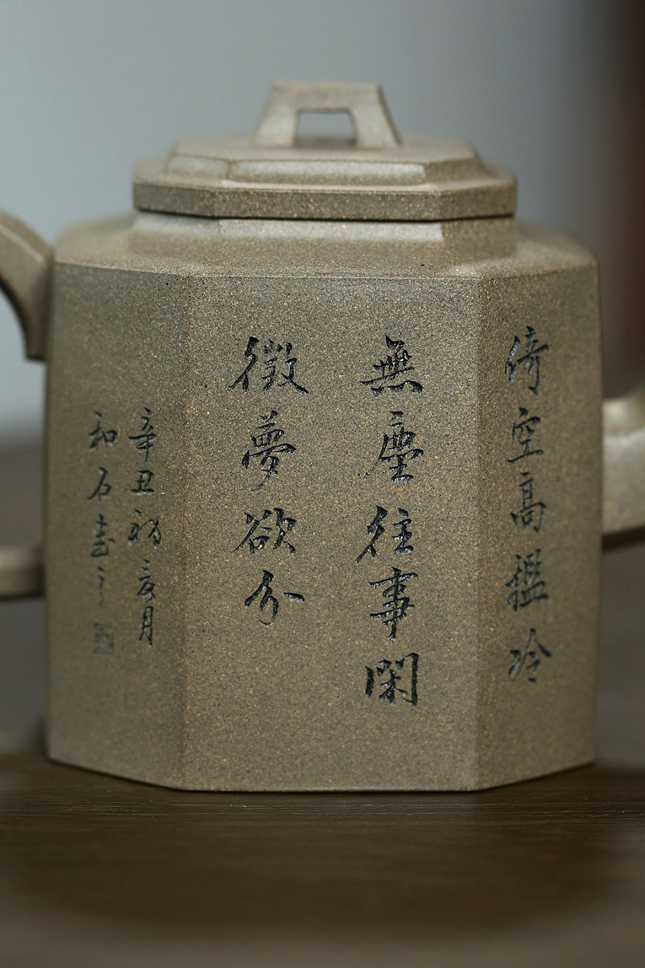 倚空高檻冷
無塵往事閑
徵夢欲分
辛丑初月
和石書之